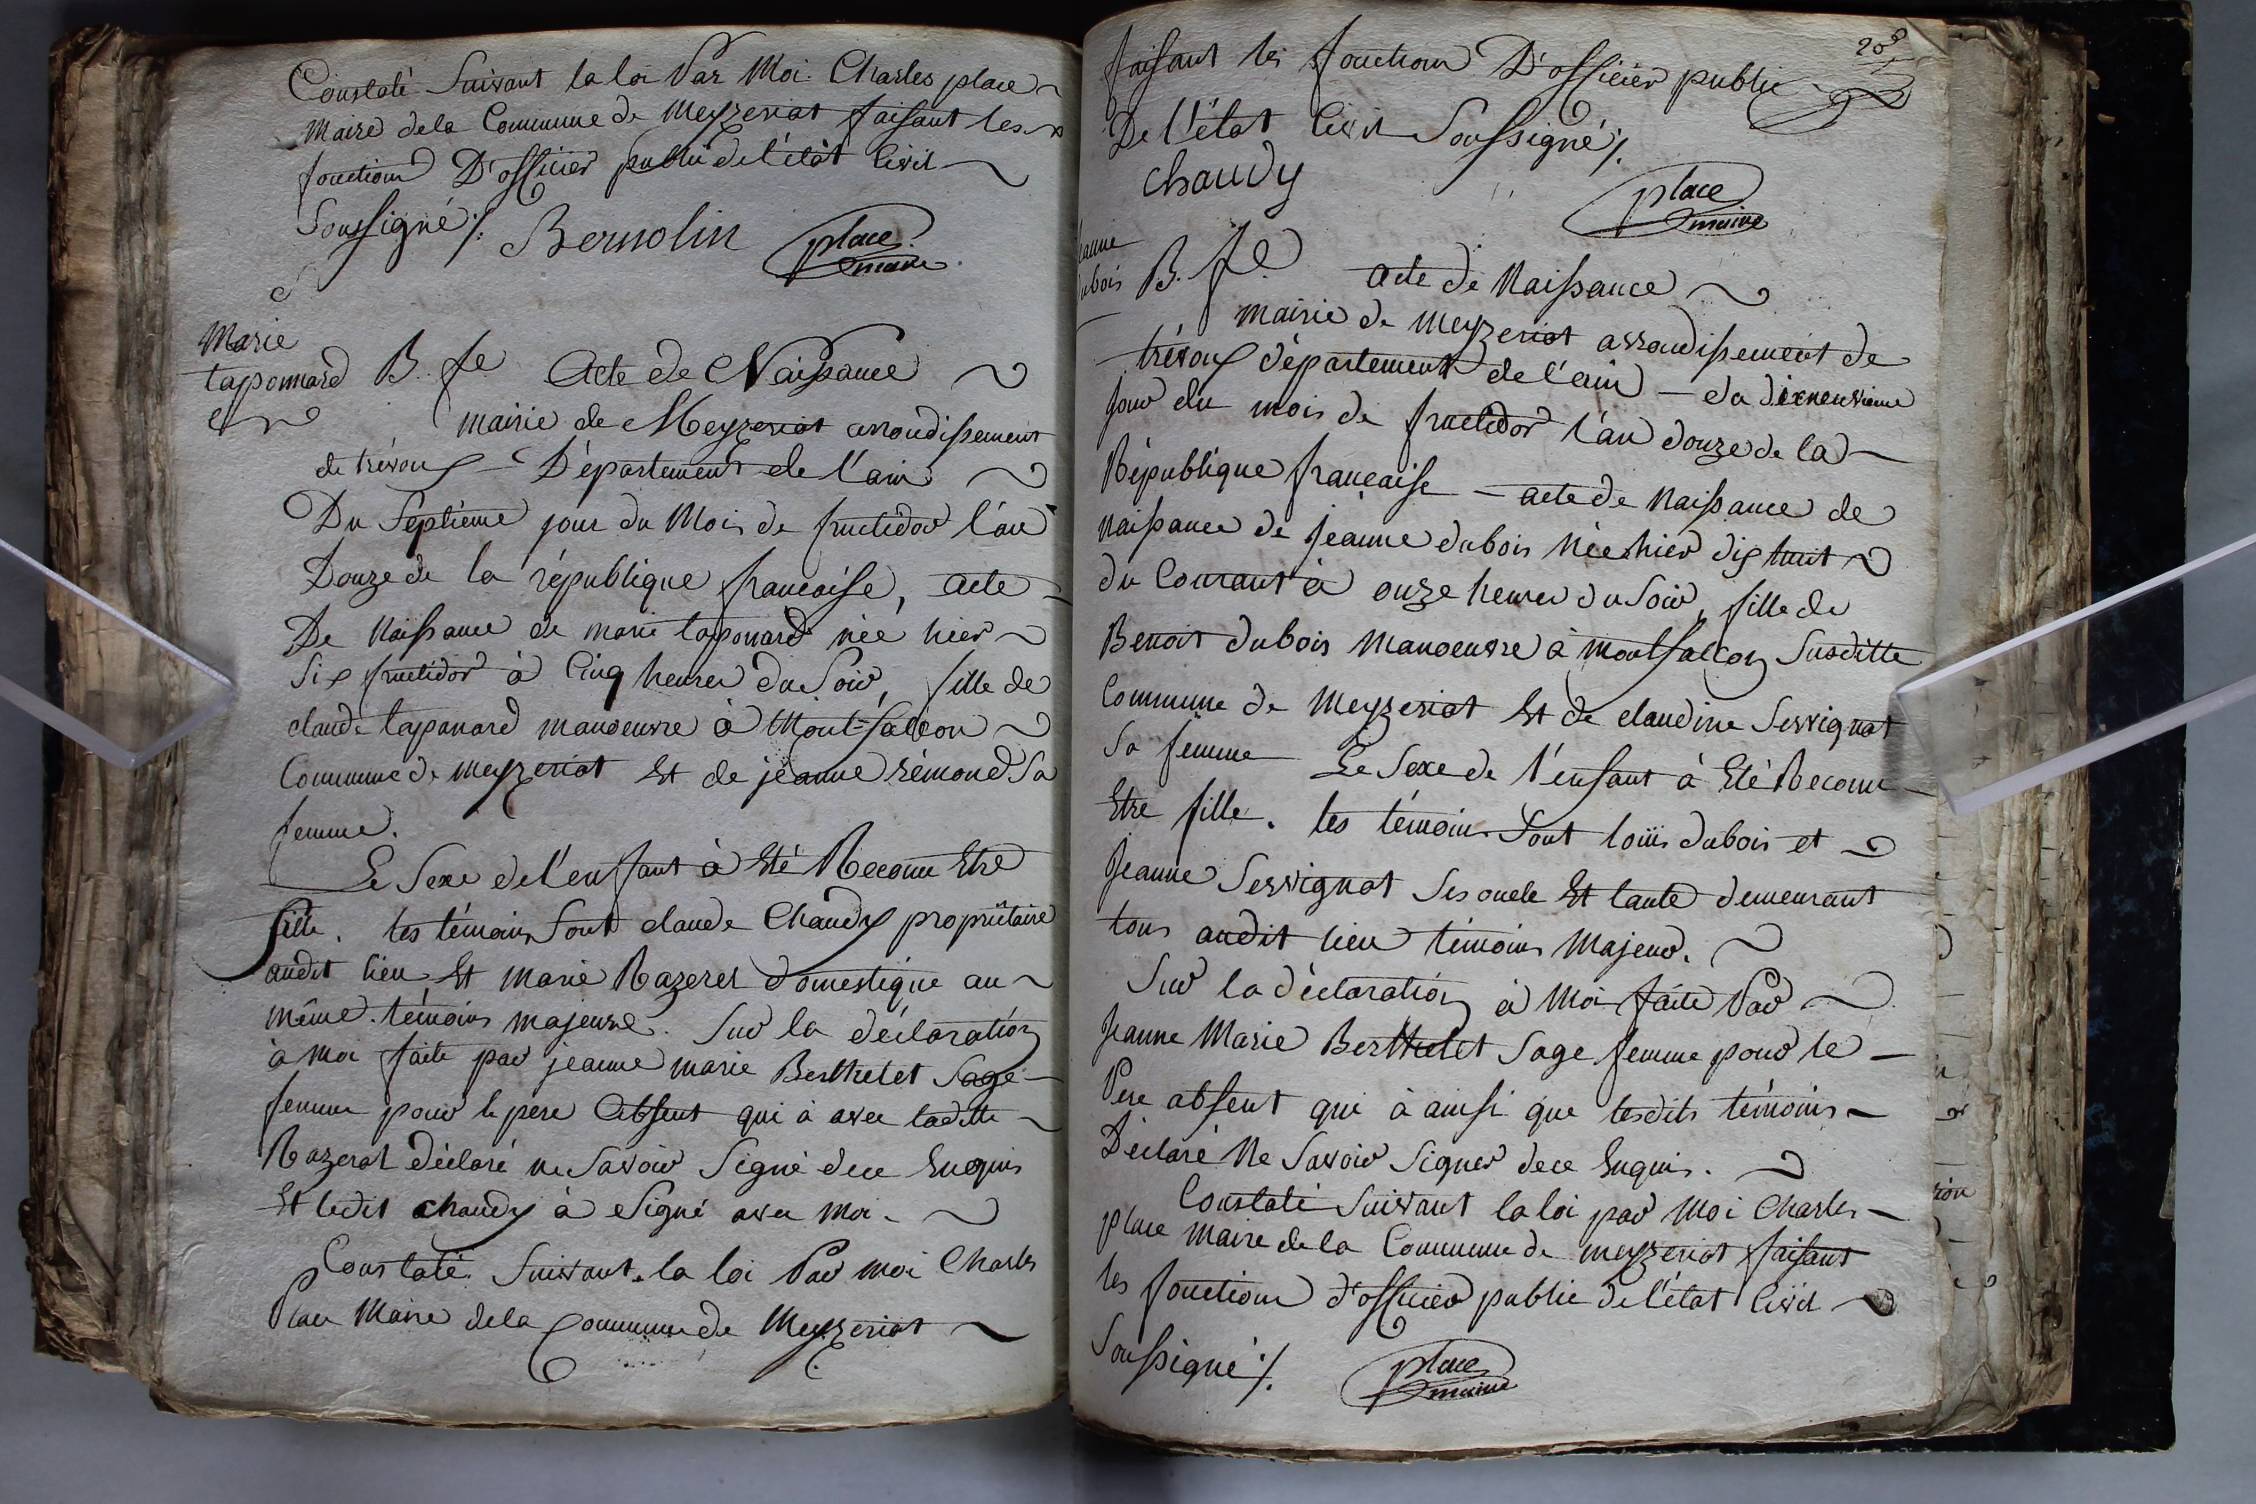 Constaté Suivant la loi Par Moi Charles place
Maire dela Commune de Meyzeriat faisant les
fonctions D'officier public de l'état Civil
Soussigné ./.
Bernolin
place
maire
Marie
taponnard
B. fe
Acte de Naissance
mairie de Meyzeriat arrondissement
de trévoux - Département de l'ain
Du Septieme jour du Mois de fructidor l'an
Douze de la république francaise, acte
De Naissance de marie taponard née hier
Six fructidor à Cinq heures du Soir, fille de
claude taponard manoeuvre à Mont-falcon
Commune de meyzeriat Et de jeanne rémond Sa
femme.
Le Sexe de l'enfant à Eté Reconnu Etre
fille. les témoins Sont claude Chaudy propriétaire
audit lieu Et marie Razerel domestique au
même. témoins majeurs. Sur la déclaration
à Moi faite par jeanne marie Berthelet Sage
femme pour le pere Absent qui à avec ladite
Razerat déclaré ne Savoir Signé dece Enquis
Et ledit chaudy à Signé avec Moi.
Constaté Suivant la loi Par moi Charles
Place Maire dela Commune de Meyzeriat
208
faisant les fonctions D'officier public
De l'état Civil Soussigné ./.
chaudy
place
maire
B. fe
acte de Naissance
mairie de Meyzeriat arrondissement de
trévoux département de l'ain - du dixneuvieme
jour du mois de fructidor l'an douze de la
République française - acte de Naissance de
naissance de jeanne dubois née hier dix huit
du Courant à onze heures du Soir, fille de
Benoit dubois Manoeuvre à montfalcon Susditte
Commune de Meyzeriat Et de claudine Servignat
Sa femme Le Sexe de l'enfant à Eté Reconnu
Etre fille. les témoins Sont loüis dubois et
Jeanne Servignat Ses oncle Et tante demeurant
tous audit lieu témoins Majeur.
Sur la déclaration à Moi faite Par
Jeanne Marie Berthelet Sage femme pour le
Pere absent qui à ainsi que lesdits témoins
Déclaré Ne Savoir Signer dece Enquis.
Constaté Suivant la loi par Moi Charles
place Maire de la Commune de meyzeriat faisant
les fonctions d'officier public de l'état Civil
Soussigné ./.
place
maire